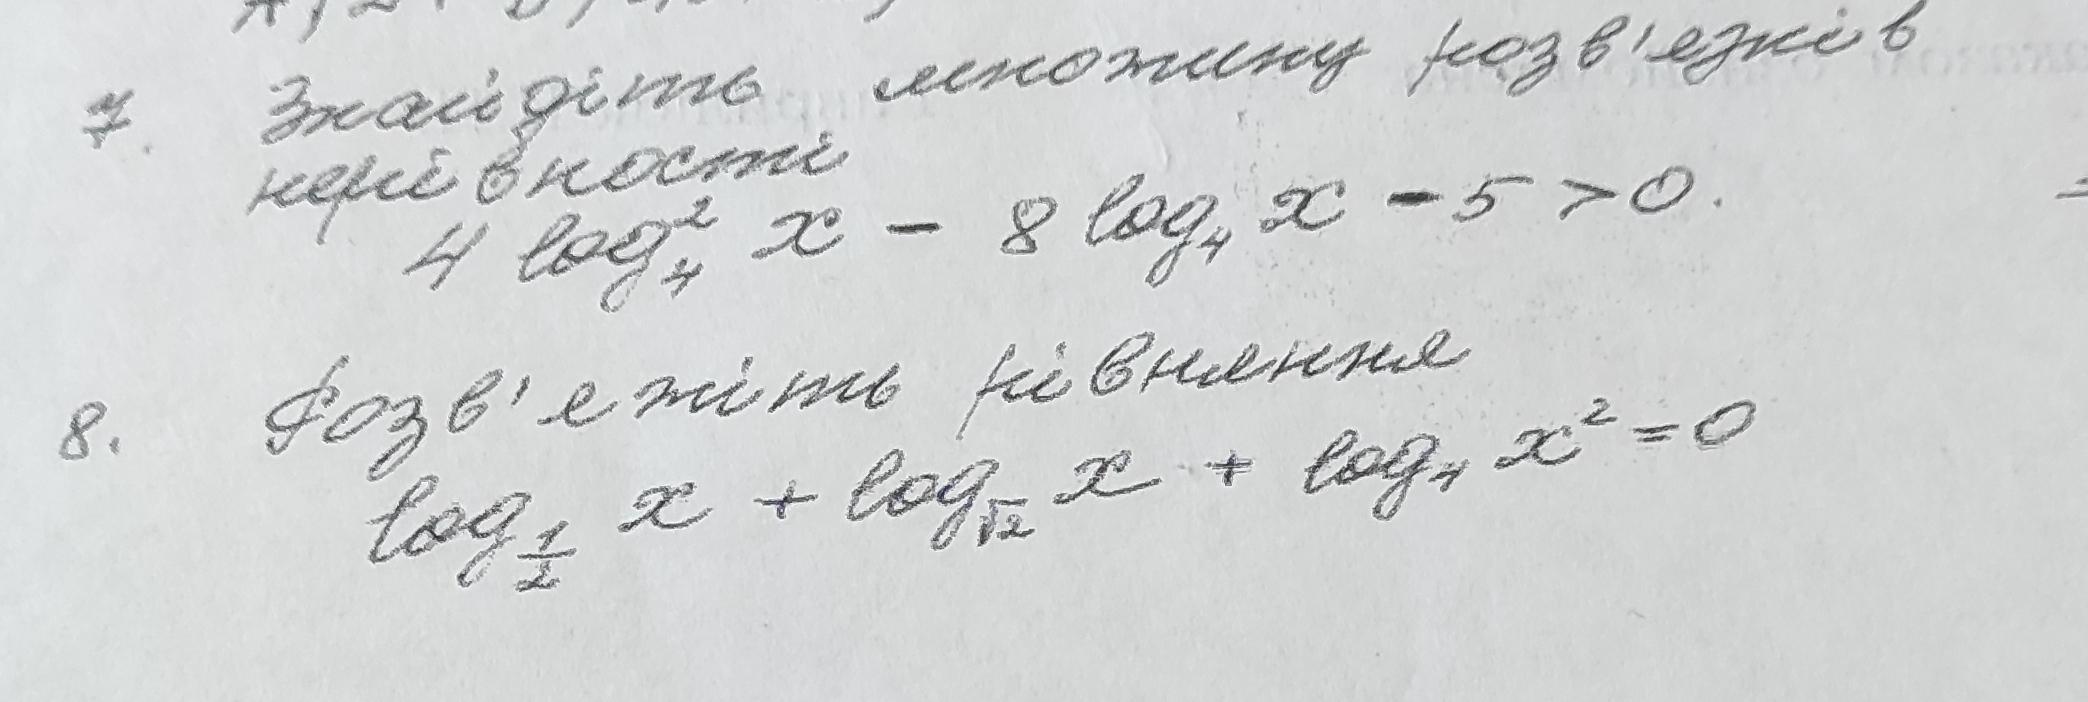 7. Знайдіть множину розв'язків
нерівності
4 log₄² x - 8 log₄ x - 5 > 0.
8. Розв'яжіть рівняння
log_{1/2} x + log_{√2} x + log₄ x² = 0